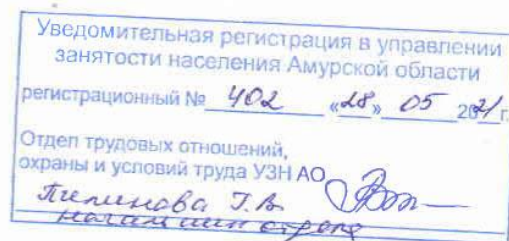 Уведомительная регистрация в управлении
занятости населения Амурской области
регистрационный № 402 «28» 05 2021 г.
Отдел трудовых отношений,
охраны и условий труда УЗН АО